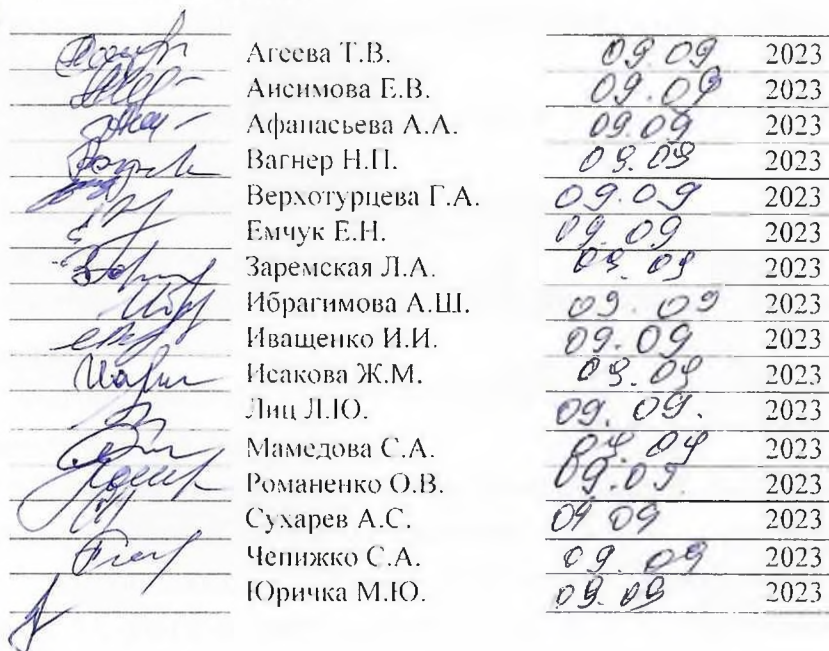 Агеева Т.В. 09.09 2023
Ансимова Е.В. 09.09 2023
Афанасьева А.А. 09.09 2023
Вагнер Н.П. 09.09 2023
Верхотурцева Г.А. 09.09 2023
Емчук Е.Н. 09.09 2023
Заремская Л.А. 09.09 2023
Ибрагимова А.Ш. 09.09 2023
Иващенко И.И. 09.09 2023
Исакова Ж.М. 09.09 2023
Лиц Л.Ю. 09.09. 2023
Мамедова С.А. 09.09 2023
Романенко О.В. 09.09 2023
Сухарев А.С. 09 09 2023
Чепижко С.А. 09.09 2023
Юричка М.Ю. 09.09 2023